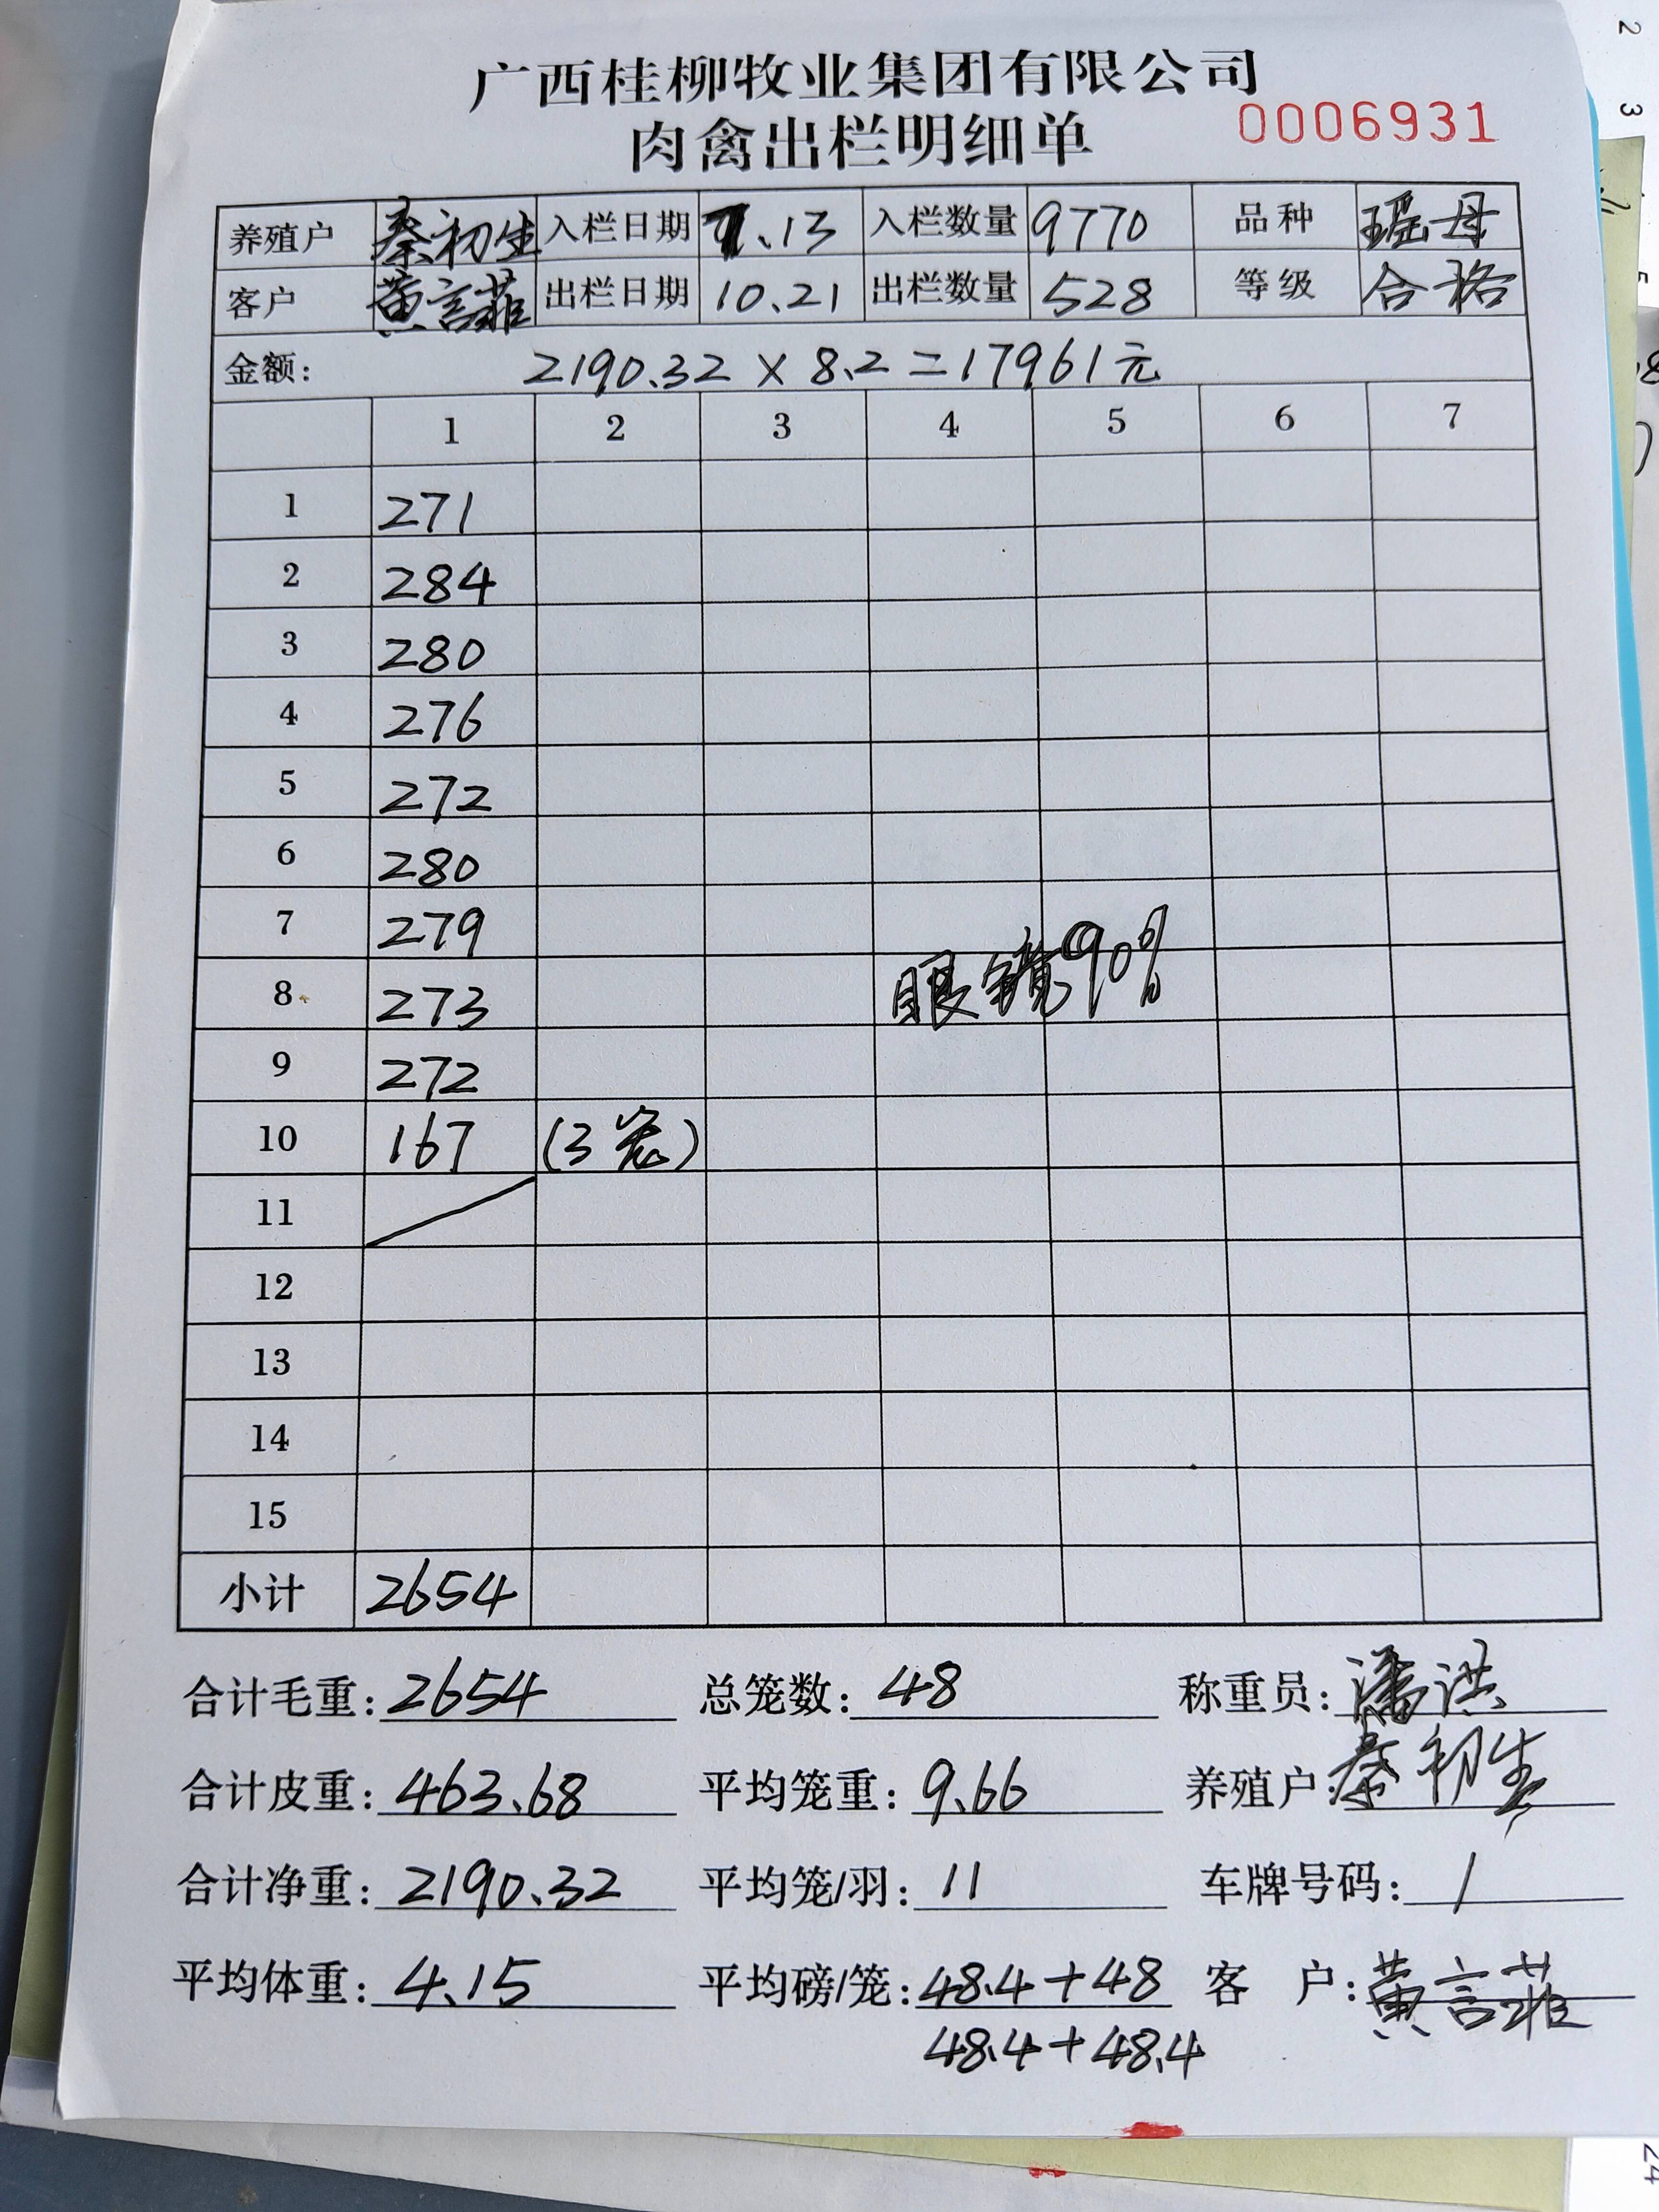 广西桂柳牧业集团有限公司
肉禽出栏明细单 0006931
养殖户 秦初生 入栏日期 7.13 入栏数量 9770 品种 瑶母
客户 黄言菲 出栏日期 10.21 出栏数量 528 等级 合格
金额: 2190.32 × 8.2 = 17961元
1 2 3 4 5 6 7
1 271
2 284
3 280
4 276
5 272
6 280
7 279
8 273 眼镜90%
9 272
10 167 (3笼)
11
12
13
14
15
小计 2654
合计毛重: 2654 总笼数: 48 称重员: 潘洪
合计皮重: 463.68 平均笼重: 9.66 养殖户: 秦初生
合计净重: 2190.32 平均笼/羽: 11 车牌号码: /
平均体重: 4.15 平均磅/笼: 48.4+48 客 户: 黄言菲
48.4+48.4